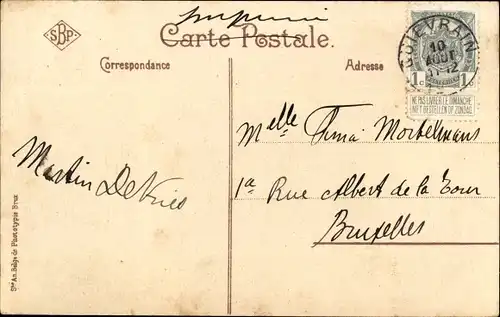 imprimé
SBP
Carte Postale.
Correspondance
Adresse
QUIÉVRAIN
10
AOUT
11-12
1c 1c
NE PAS LIVRER LE DIMANCHE
NIET BESTELLEN OP ZONDAG
Melle Tima Mortelmans
1a Rue Albert de la Tour
Bruxelles
Martin DeVries
Sté An. Belge de Phototypie Brux.